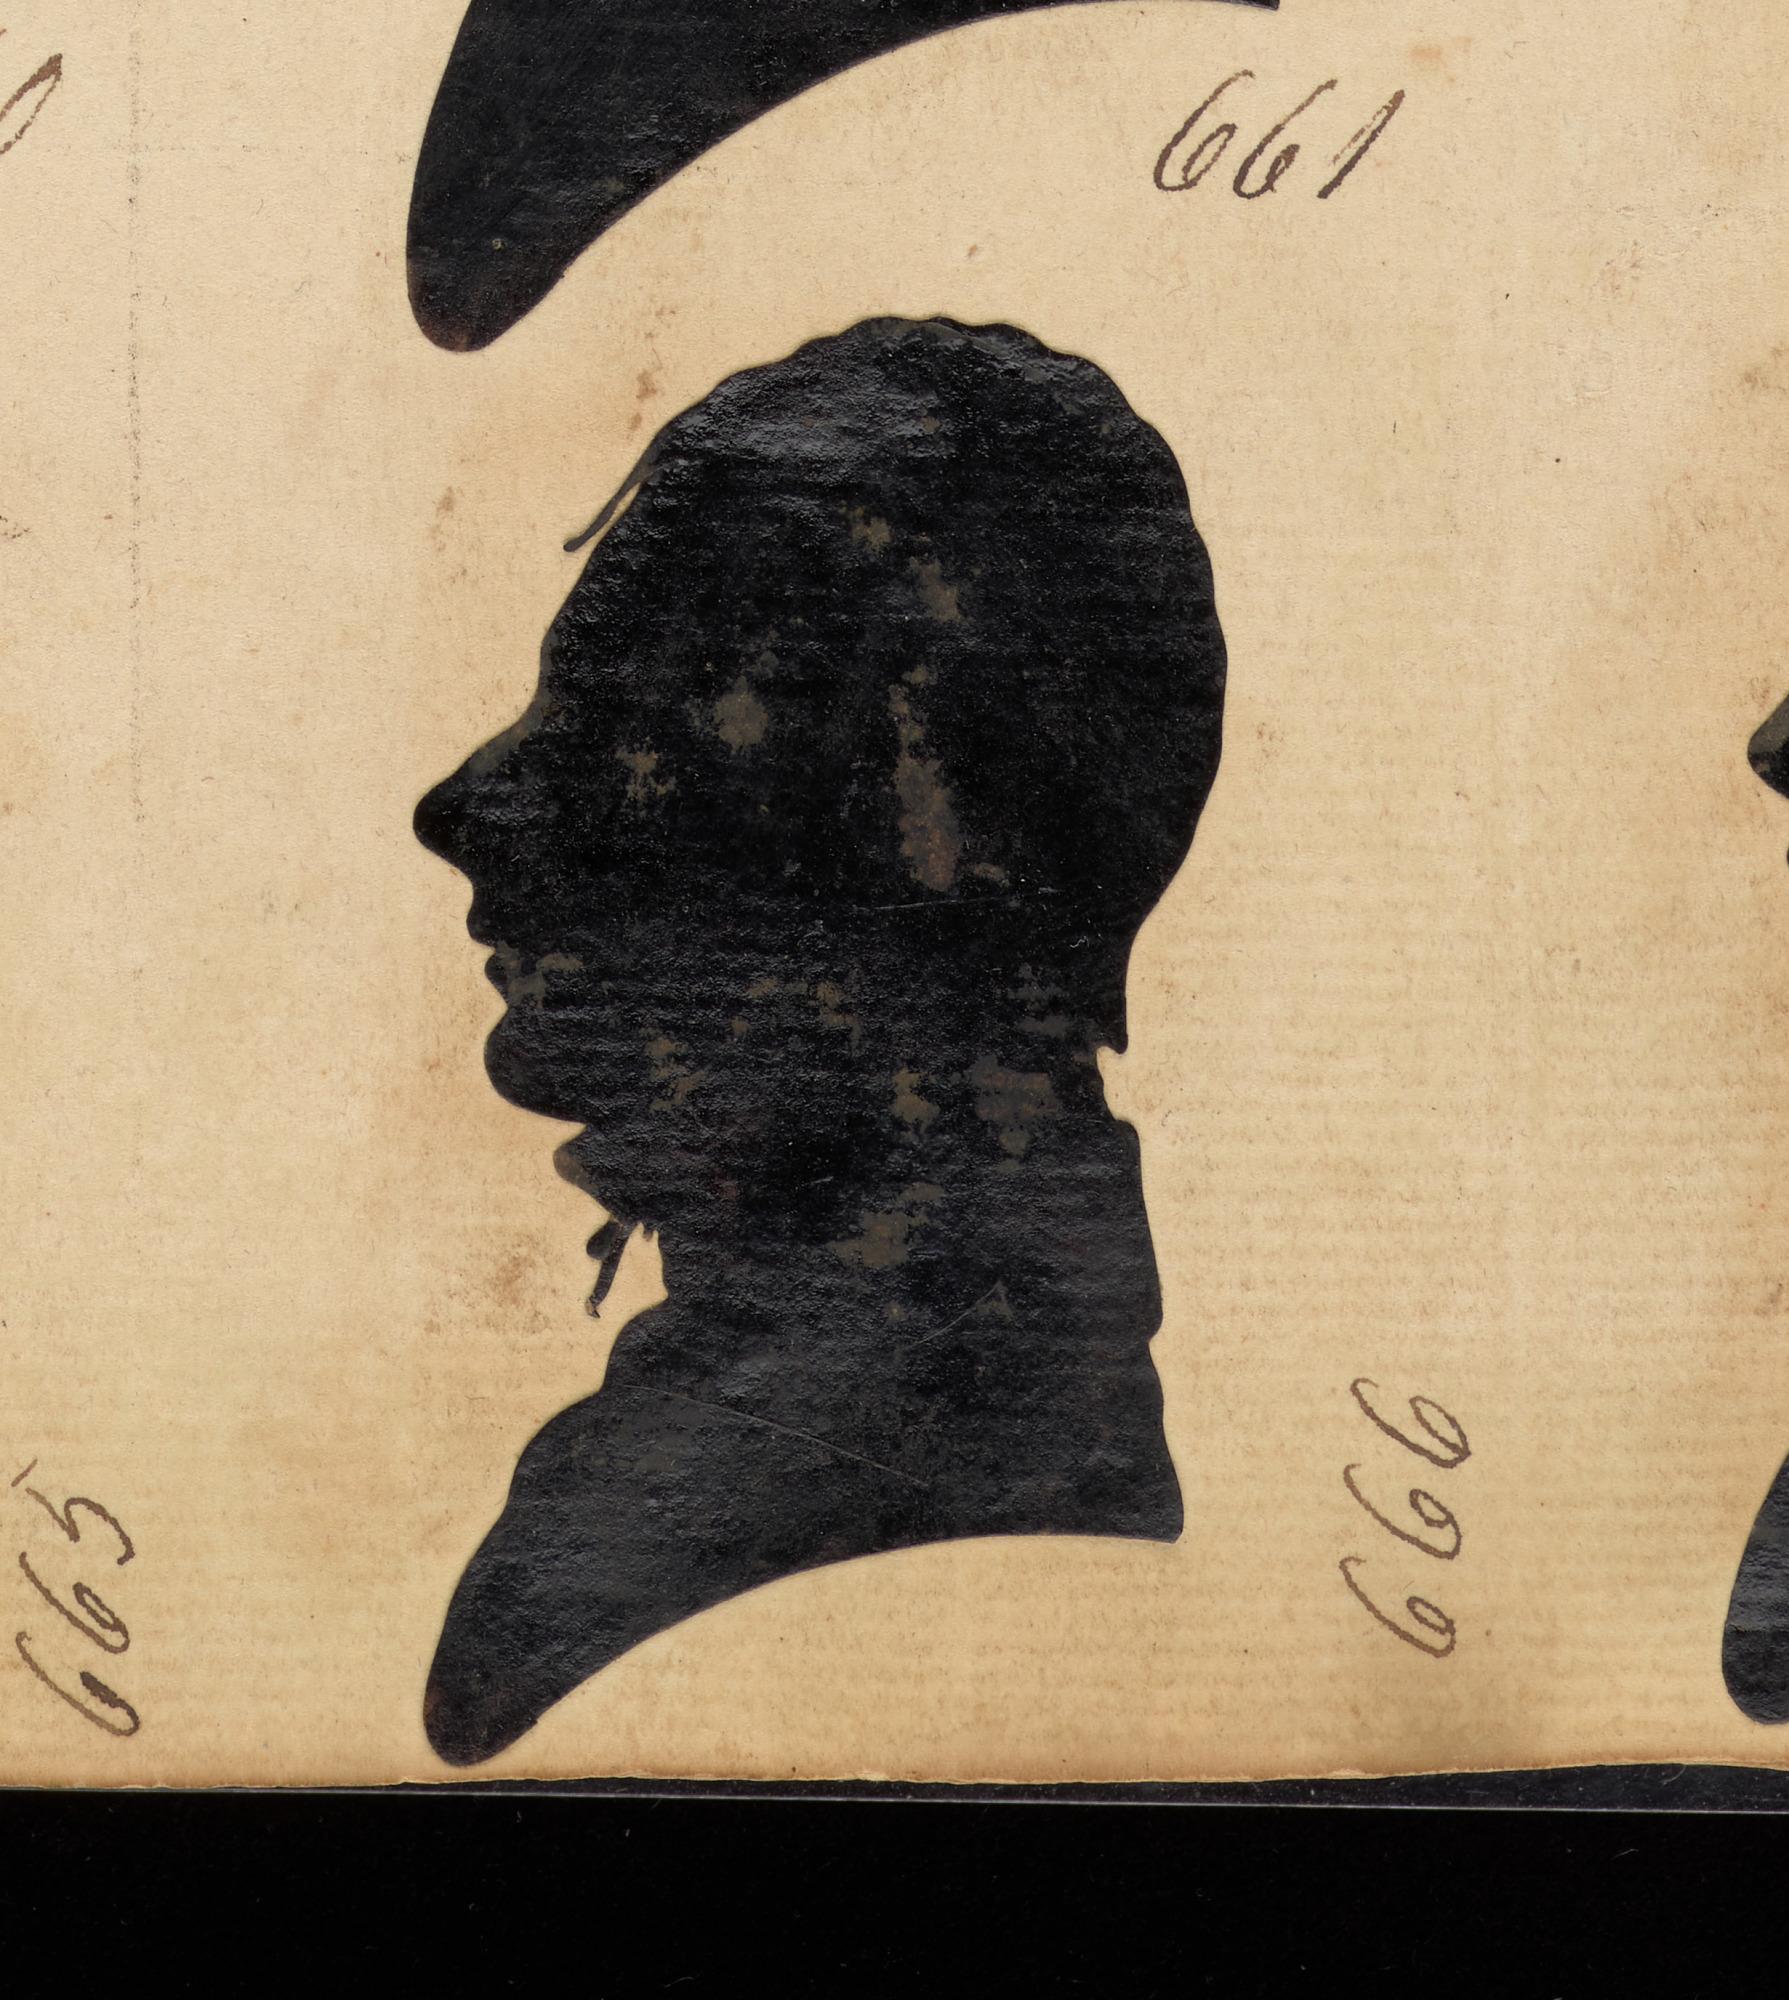 661
665
666